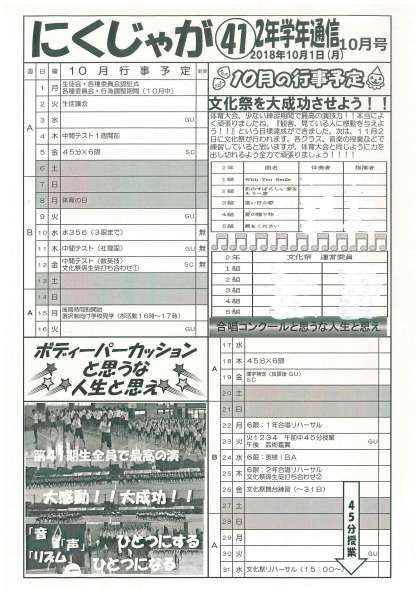 にくじゃが
41
2年学年通信
2018年10月1日(月)
10月号
週 日 曜 10月行事予定
1 月 生徒会・各種委員会認証式
各種委員会・行事調整期間(10月中)
2 火 生徒議会
A
3 水 GU
4 木 中間テスト1週間前
5 金 45分×6限 SC
6 土
7 日
8 月 体育の日
9 火 GU
B 10 水 水356(3限まで) 無
11 木 中間テスト(社理国) GU 無
12 金 中間テスト(数英技) SC 無
文化祭係生徒打ち合わせ①
13 土
14 日
A 15 月
16 火 GU
10月の行事予定
文化祭を大成功させよう!!
体育大会、少ない練習期間で最高の演技力!!本当によ
く頑張りましたね。『観客、見ている人に感動を与えよ
う!!』という目標達成ができました。次は、11月2
日に文化祭が行われます。各クラス、音楽の授業などで
練習していると思いますが、体育大会と同じように力を
出し切れるよう全力で頑張りましょう!!!!
2年 曲名 伴奏者 指揮者
1組 With You Smile
2組
3組
4組 夏の贈り物
5組
2年 文化祭 運営委員
1組
2組
3組
4組
5組
合唱コンクールと思うな人生と思え
ボディーパーカッション
と思うな
人生と思え
第41期生全員で最高の演
大感動!!大成功!!
「音」
「声」
「リズム」
ひとつにする
ひとつになる
17 水
A
18 木 45分×6限
19 金 SC
20 土
21 日
22 月 6限:1年合唱リハーサル
23 火 火1234 午前中45分授業 GU
午後 芸術鑑賞
B 24 水 6限:英検IBA
25 木 6限:2年合唱リハーサル GU
文化祭係生徒打ち合わせ②
26 金 文化祭舞台練習(~31日)
27 土
28 日
29 月
A
30 火 GU
31 水 文化祭リハーサル(15:00~)
45分授業